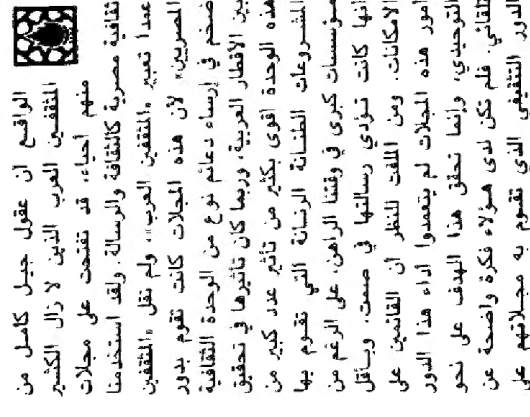 الواقع ان عقول جيل كامل من
المثقفين العرب الذين لا زال الكثير
منهم أحياء، قد تفتحت على مجلات
ثقافية مصرية كالثقافة والرسالة. ولقد استخدمنا
عمداً تعبير «المثقفين العرب»، ولم نقل «المثقفين
المصريين» لأن هذه المجلات كانت تقوم بدور
ضخم في إرساء دعائم نوع من الوحدة الثقافية
بين الأقطار العربية، وربما كان تأثيرها في تحقيق
هذه الوحدة أقوى بكثير من تأثير عدد كبير من
المشروعات الطنانة الرنانة التي تقوم بها
مؤسسات كبرى في وقتنا الراهن، على الرغم من
أنها كانت تؤدي رسالتها في صمت، وبأقل
الامكانات. ومن الملفت للنظر أن القائمين على
أمور هذه المجلات لم يتعمدوا أداء هذا الدور
التوحيدي، وإنما تحقق هذا الهدف على نحو
تلقائي. فلم تكن لدى هؤلاء فكرة واضحة عن
الدور التثقيفي الذي تقوم به مجلاتهم على